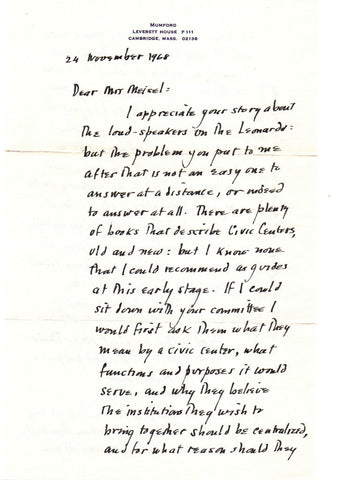 MUMFORD
LEVERETT HOUSE F 111
CAMBRIDGE, MASS. 02138
24 November 1968
Dear Mrs Meisel:
I appreciate your story about
the loud-speakers on the Leonardo:
but the problem you put to me
after that is not an easy one to
answer at a distance, or indeed
to answer at all. There are plenty
of books that describe Civic Centers,
old and new: but I know none
that I could recommend as guides
at this early stage. If I could
sit down with your committee I
would first ask them what they
mean by a civic center, what
functions and purposes it would
serve, and why they believe
the institutions they wish to
bring together should be centralized,
and for what reason should they